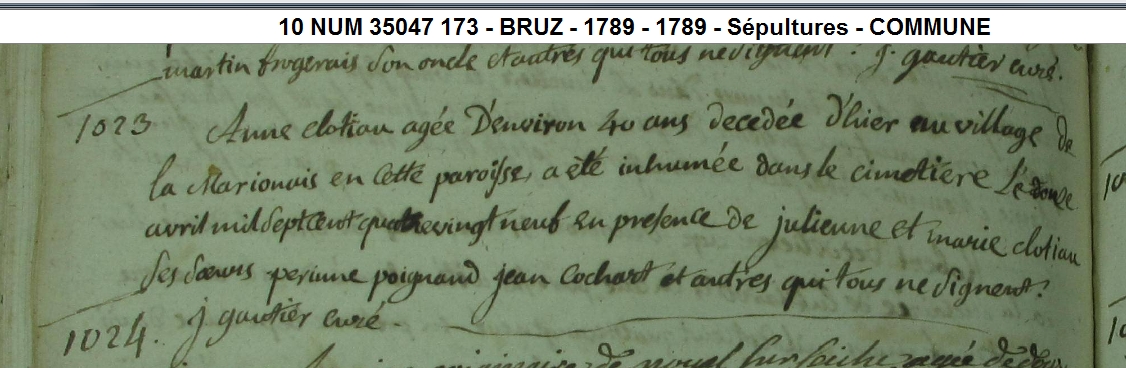 10 NUM 35047 173 - BRUZ - 1789 - 1789 - Sépultures - COMMUNE
martin frogerais son oncle et autres qui tous ne signent. j. gautier curé.
1023 Anne clotiau agée D'environ 40 ans decedée d'hier au village de
la Marionais en cette paroisse, a été inhumée dans le cimetière Le douze
avril mil sept cent quatrevingt neuf en presence de julienne et marie clotiau
ses sœurs perinne poignand jean cochart et autres qui tous ne signent.
j gautier curé.
1024.